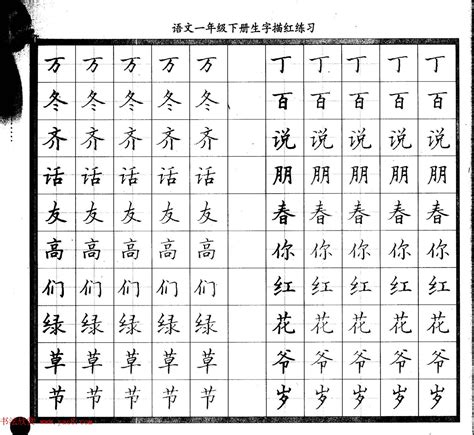 语文一年级下册生字描红练习
万 万 万 万 万 丁 丁 丁 丁 丁
冬 冬 冬 冬 冬 百 百 百 百 百
齐 齐 齐 齐 齐 说 说 说 说 说
话 话 话 话 话 朋 朋 朋 朋 朋
友 友 友 友 友 春 春 春 春 春
高 高 高 高 高 你 你 你 你 你
们 们 们 们 们 红 红 红 红 红
绿 绿 绿 绿 绿 花 花 花 花 花
草 草 草 草 草 爷 爷 爷 爷 爷
节 节 节 节 节 岁 岁 岁 岁 岁